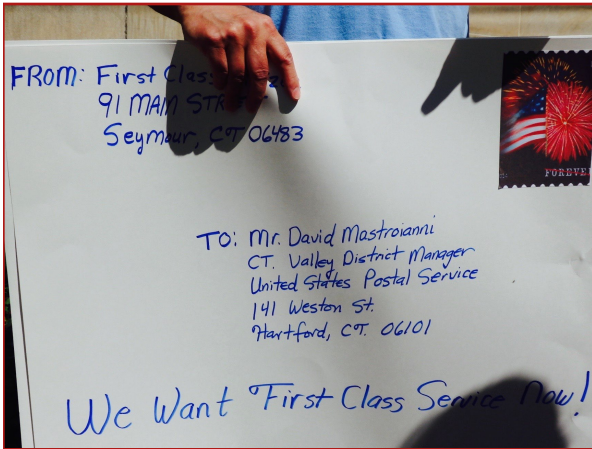 FROM: First Class
91 MAIN STREET
Seymour, CT 06483
FOREVER
TO: Mr. David Mastroianni
CT. Valley District Manager
United States Postal Service
141 Weston St.
Hartford, CT. 06101
We Want First Class Service Now!